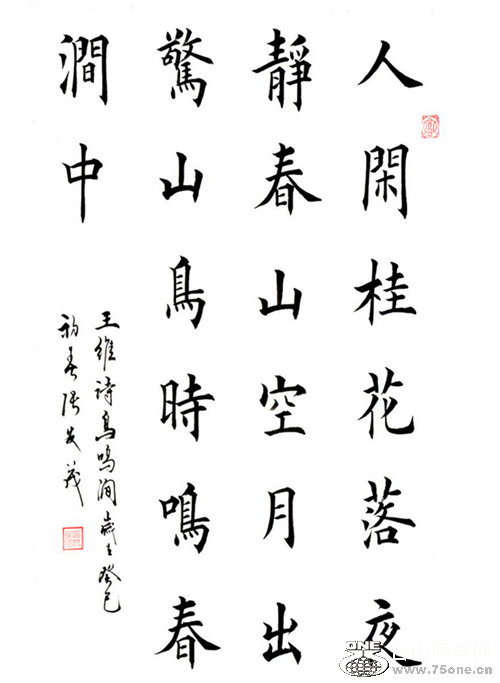 人閑桂花落夜
靜春山空月出
驚山鳥時鳴春
澗中
王維詩鳥鳴澗歲在癸巳
初春張英茂
ONE
www.75one.cn